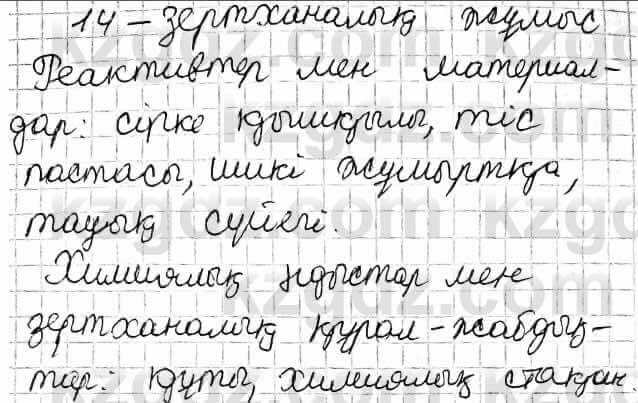 14 – зертханалық жұмыс
Реактивтер мен материал-
дар: сірке қышқылы, тіс
пастасы, шикі жұмыртқа,
тауық сүйегі.
Химиялық ыдыстар мен
зертханалық құрал-жабдық-
тар: құты, химиялық стақан.